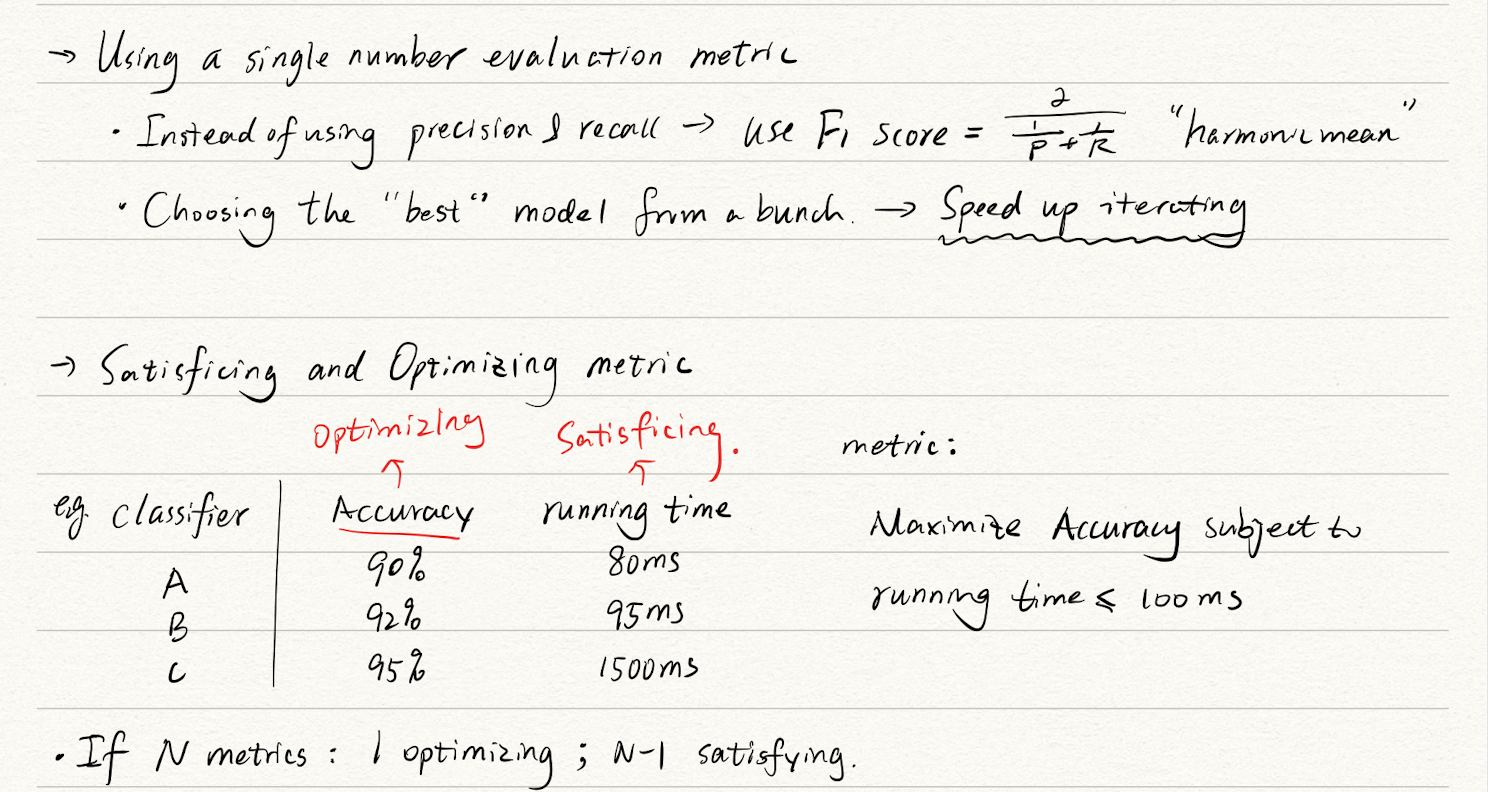 → Using a single number evaluation metric
• Instead of using precision & recall → use F1 score = 2/(1/P + 1/R) "harmonic mean"
• Choosing the "best" model from a bunch. → Speed up iterating
→ Satisficing and Optimizing metric
Optimizing Satisficing.
↑ ↑
metric:
e.g. classifier | Accuracy running time
A | 90% 80ms
B | 92% 95ms
C | 95% 1500ms
Maximize Accuracy subject to
running time ≤ 100ms
• If N metrics: 1 optimizing; N-1 satisfying.